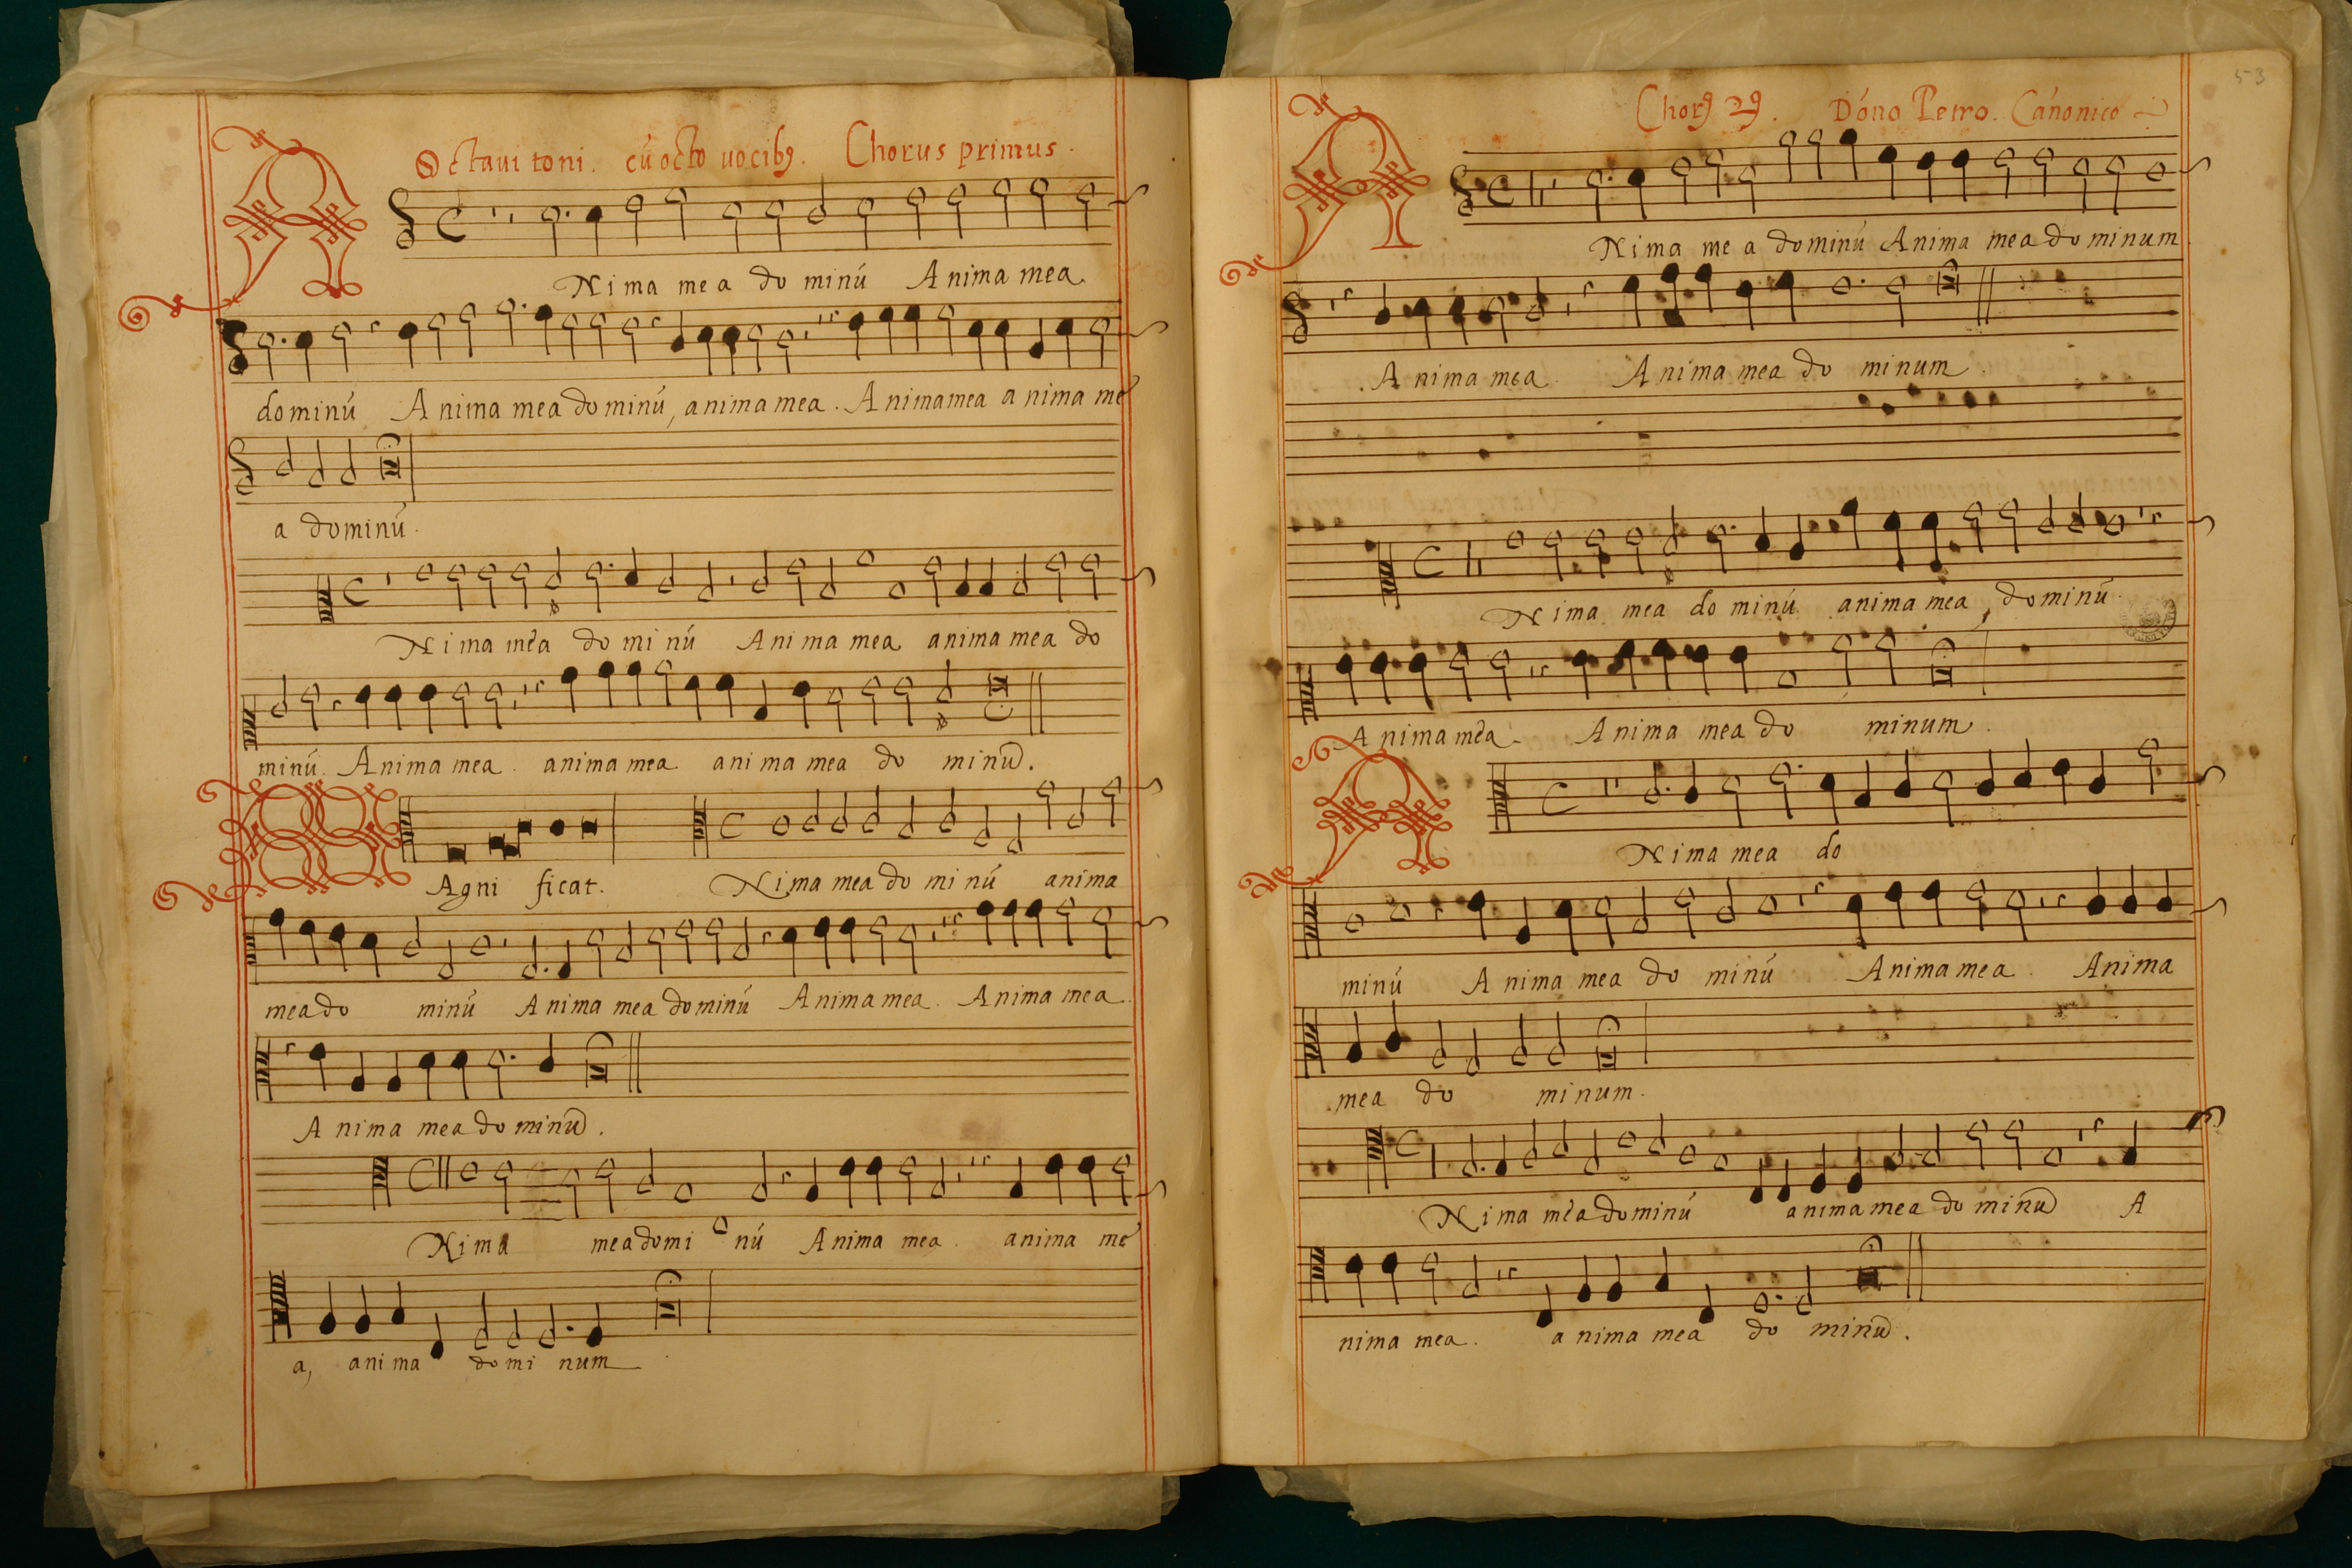 Octaui toni. cú octo uocibꝰ. Chorus primus.
A Nima mea do minú Anima mea
dominú Anima mea dominú, anima mea. Anima mea anima me
a dominú.
Nima mea do mi nú Anima mea anima mea do
minú. Anima mea. anima mea ani ma mea do minū.
M Agni ficat. Nima mea do mi nú anima
mea do minú Anima mea dominú Anima mea. Anima mea.
Anima mea do minū.
Nima mea domi nú Anima mea. anima me
a, anima domi num
53
Chorꝰ 2ꝰ. Dóno Petro. Cánonico
A Nima me a dominú Anima mea do minum
. Anima mea. Anima mea do minum.
Nima mea do minú anima mea, dominú
Anima mea. Anima mea do minum.
A Nima mea do
minú Anima mea do minú Anima mea. Anima
mea do minum.
Nima mea dominú anima mea do minū A
nima mea. a nima mea do minū.